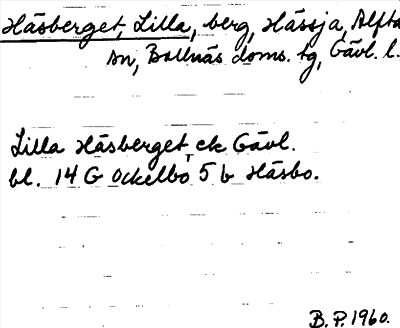 Häsberget, Lilla, berg, Hässja, Alfta
sn, Bollnäs doms. tg, Gävl. l.
Lilla Häsberget ek Gävl.
bl. 14 G Ockelbo 5 b Häsbo.
B.P. 1960.